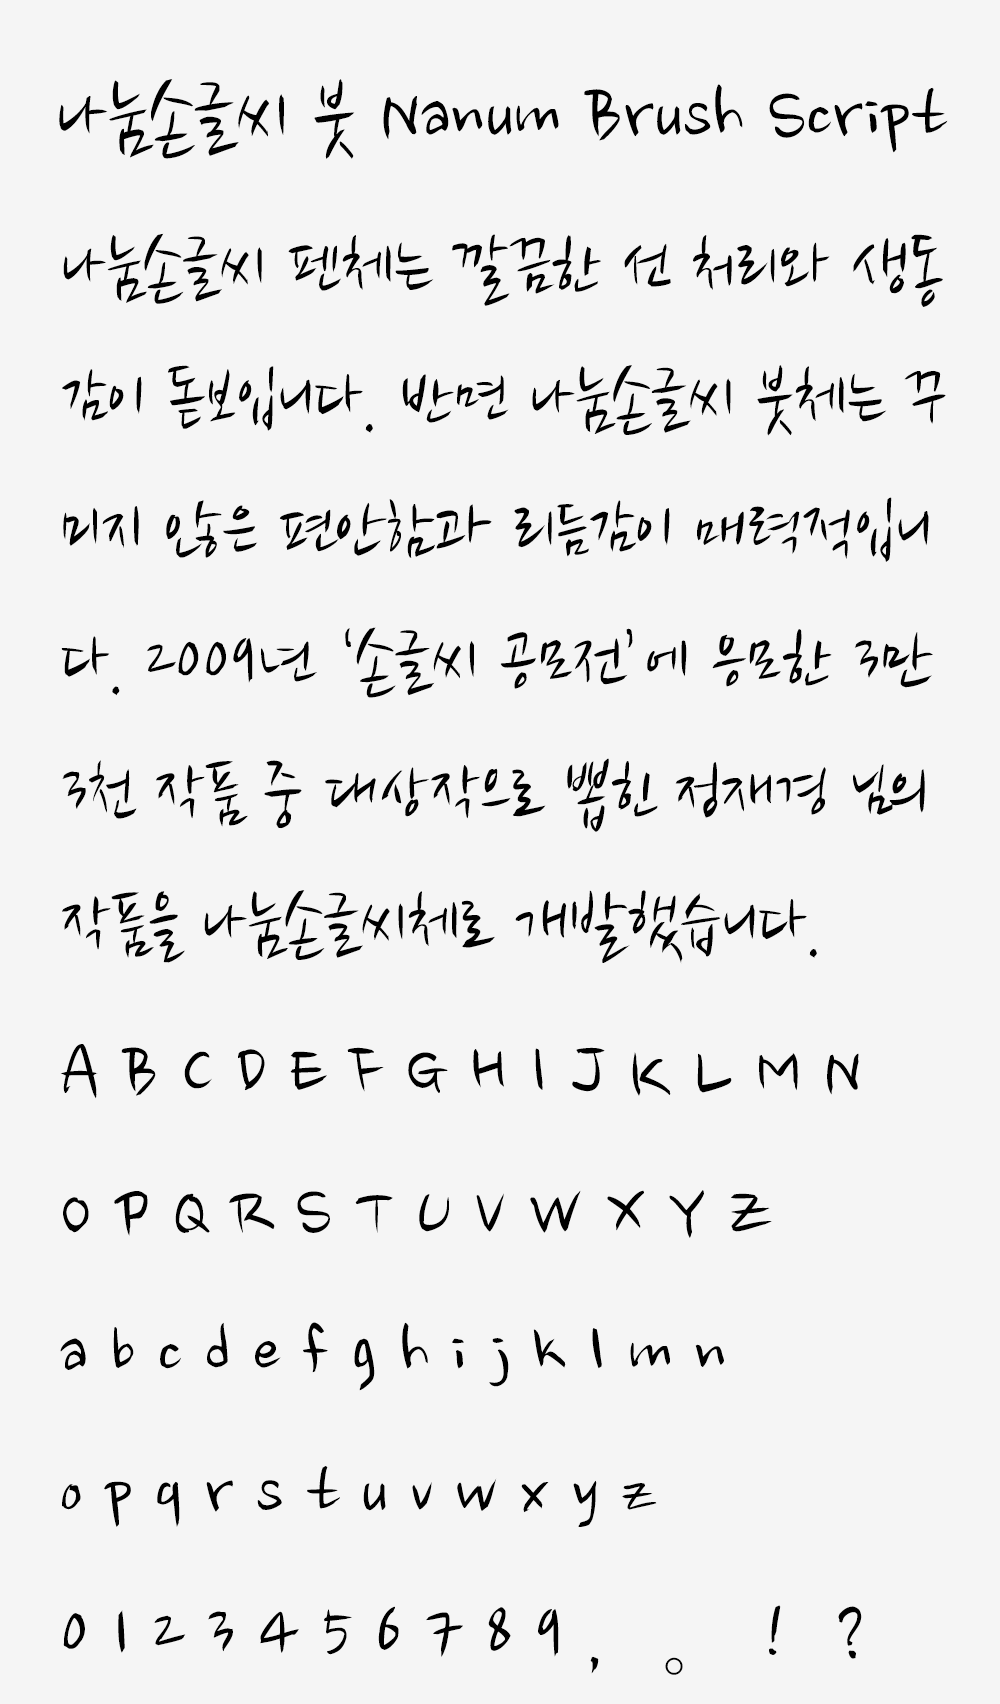 나눔손글씨 붓 Nanum Brush Script
나눔손글씨 펜체는 깔끔한 선 처리와 생동
감이 돋보입니다. 반면 나눔손글씨 붓체는 꾸
미지 않은 편안함과 리듬감이 매력적입니
다. 2009년 ‘손글씨 공모전’에 응모한 3만
3천 작품 중 대상작으로 뽑힌 정재경 님의
작품을 나눔손글씨체로 개발했습니다.
A B C D E F G H I J K L M N
O P Q R S T U V W X Y Z
a b c d e f g h i j k l m n
o p q r s t u v w x y z
0 1 2 3 4 5 6 7 8 9 , 。 ! ?